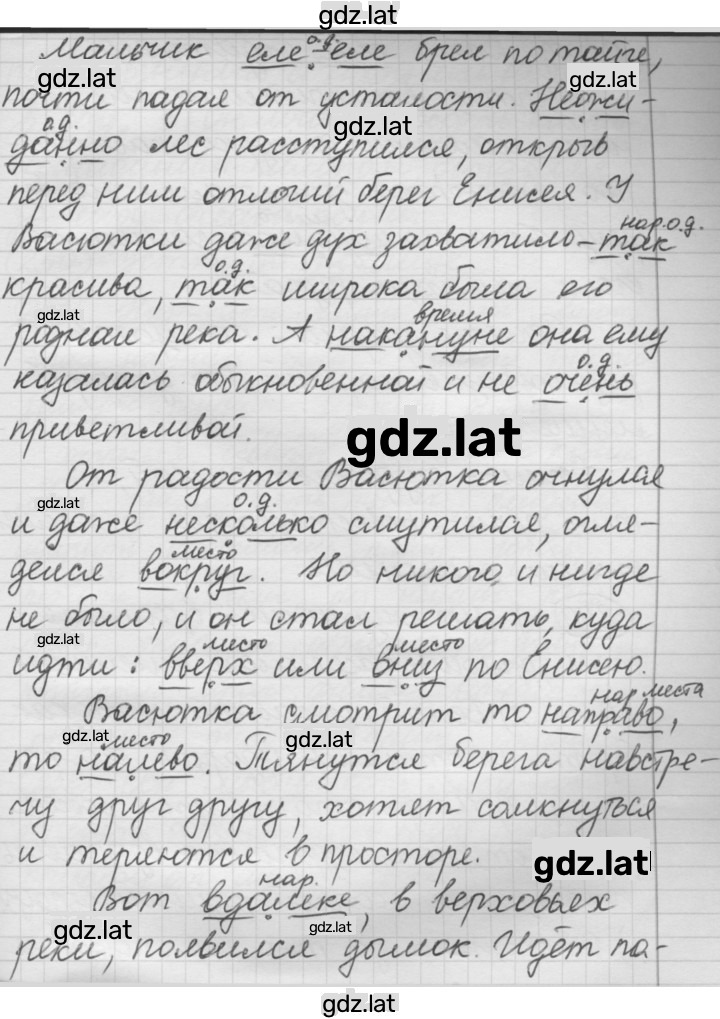 gdz.lat
о.д.
Мальчик еле-еле брел по тайге,
gdz.lat gdz.lat
почти падая от усталости. Неожи-
о.д. gdz.lat
данно лес расступился, открыв
перед ним отлогий берег Енисея. У
нар.о.д.
Васютки даже дух захватило - так
о.д.
красива, так широка была его
gdz.lat время
родная река. А накануне она ему
о.д.
казалась обыкновенной и не очень
приветливой. gdz.lat
От радости Васютка очнулся
gdz.lat о.д.
и даже несколько смутился, огля-
место
делся вокруг. Но никого и нигде
не было, и он стал решать, куда
gdz.lat место место
идти: вверх или вниз по Енисею.
нар места
Васютка смотрит то направо,
gdz.lat место gdz.lat
то налево. Тянутся берега навстре-
чу друг другу, хотят сомкнуться
и теряются в просторе. gdz.lat
нар.
Вот вдалеке, в верховьях
gdz.lat gdz.lat
реки, появился дымок. Идёт па-
gdz.lat